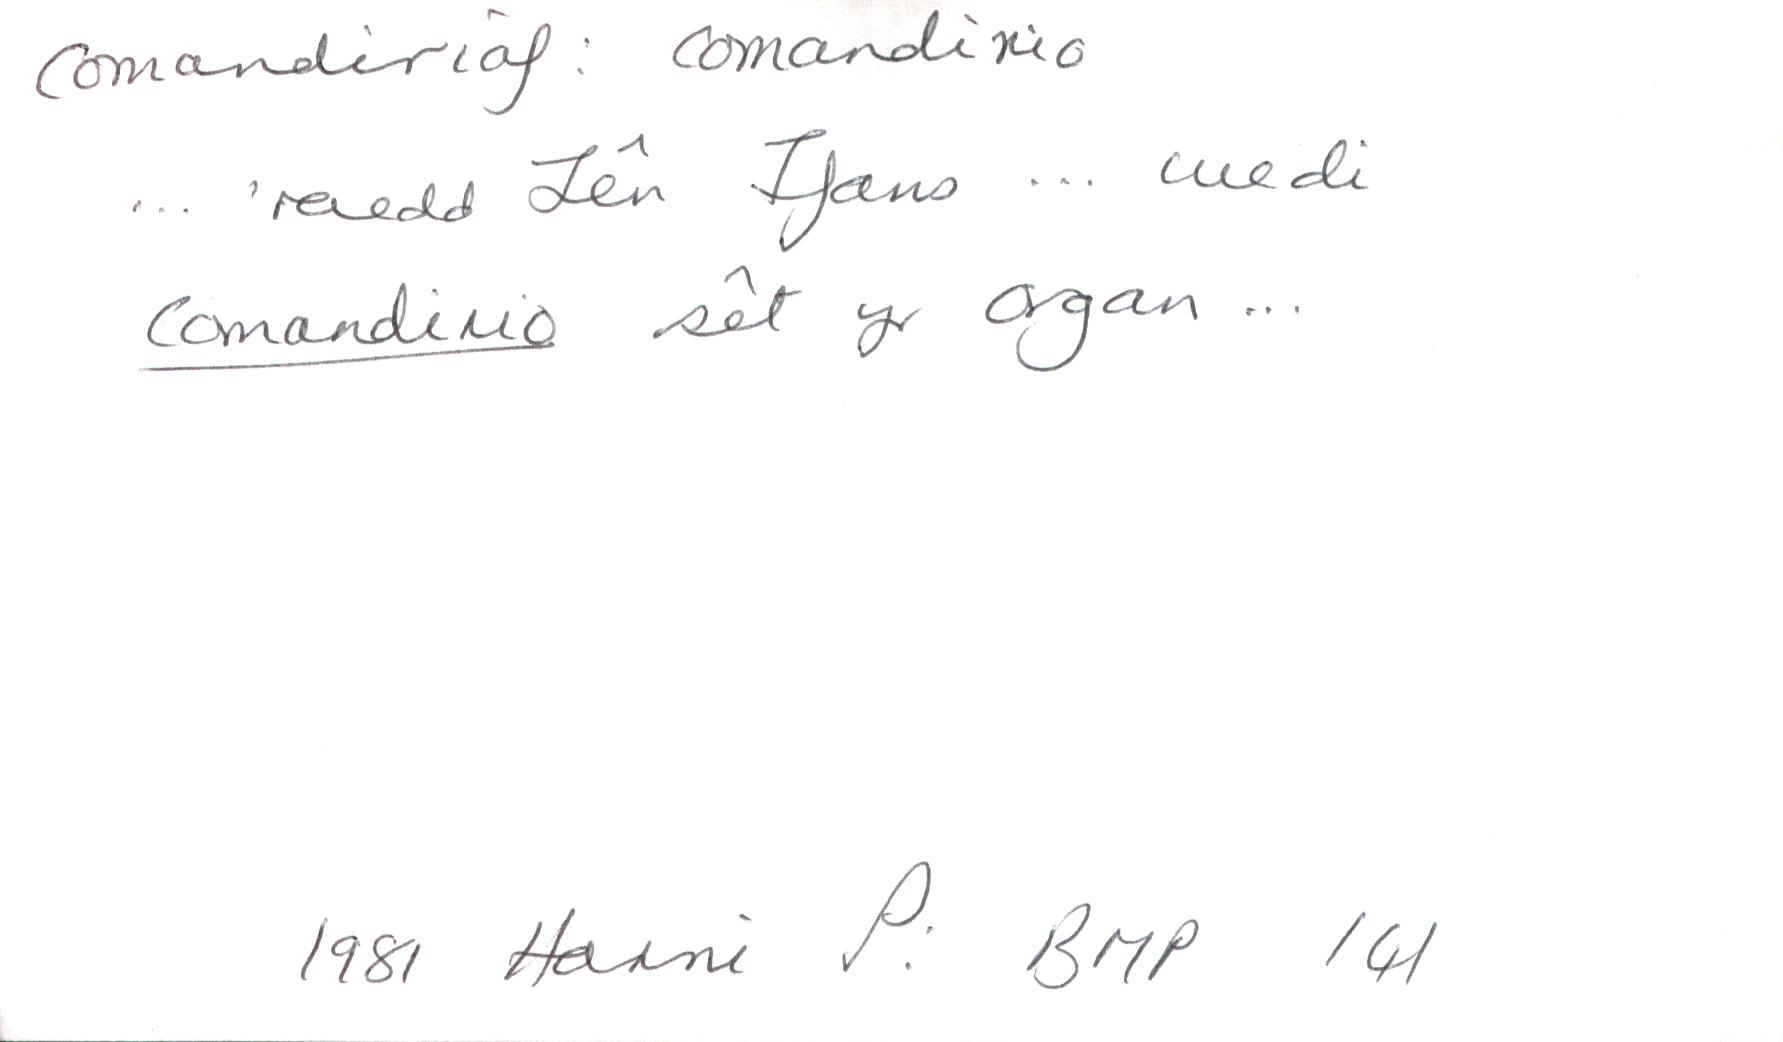 comandiriaf: comandirio
... 'roedd Lên Ifans ... wedi
comandirio sêt yr organ ...
1981 Harri P: BMP 141